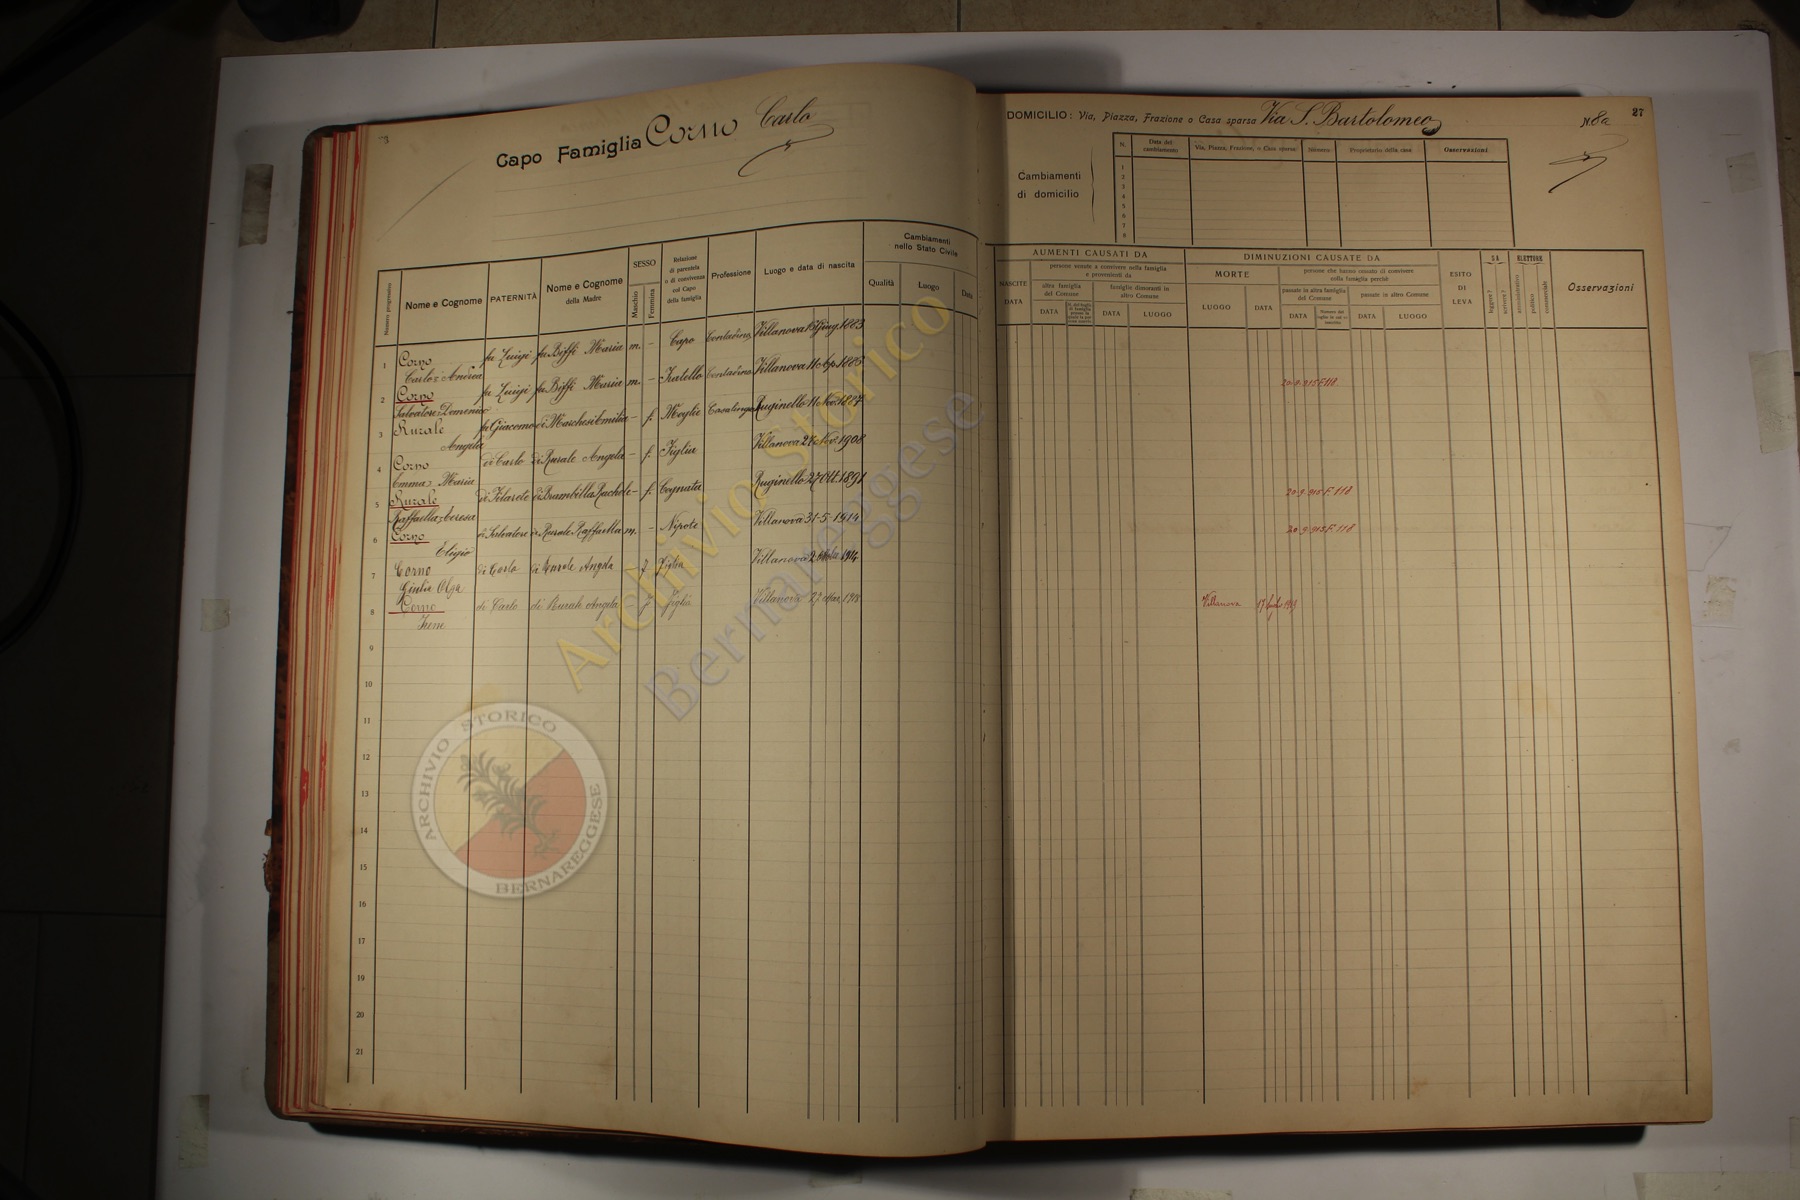 Capo Famiglia Corno Carlo
Nome e Cognome
PATERNITÀ
Nome e Cognome
della Madre
SESSO
Maschio
Femmina
Relazione
di parentela
o di convivenza
col Capo
della famiglia
Professione
Luogo e data di nascita
Cambiamenti
nello Stato Civile
Qualità
Luogo
Data
Numero progressivo
1 Corno fu Luigi fu Biffi Maria m. – Capo Contadino Villanova giug. 1883
Carlo Andrea
2 Corno fu Luigi fu Biffi Maria m. – Fratello Contadino Villanova 11 1883
Salvatore Domenico
3 Rurale fu Giacomo di Marchesi Emilia – f. Moglie Casalinga Ruginello 11 Nov. 1887
Angela
4 Corno di Carlo di Rurale Angela – f. Figlia Villanova 27 Nov. 1908
Emma Maria
5 Rurale di Brambilla Rachele – f. Cognata Ruginello 27 Ott. 1891
Raffaella Teresa
6 Corno di Salvatore di Rurale Raffaella m. – Nipote Villanova 31-5-1914
Eligio
7 Corno di Carlo di Rurale Angela f Figlia Villanova 1914
Giulia Olga
8 Corno di Carlo di Rurale Angela f figlia Villanova 27 1918
Irene
9
10
11
12
13
14
15
16
17
18
19
20
21
DOMICILIO: Via, Piazza, Frazione o Casa sparsa Via S. Bartolomeo N. 8a
27
Cambiamenti
di domicilio
N.
Data del
cambiamento
Via, Piazza, Frazione, o Casa sparsa
Numero
Proprietario della casa
Osservazioni
1
2
3
4
5
6
7
8
AUMENTI CAUSATI DA
NASCITE
DATA
persone venute a convivere nella famiglia
e provenienti da
altra famiglia
del Comune
DATA
famiglie dimoranti in
altro Comune
DATA
LUOGO
DIMINUZIONI CAUSATE DA
MORTE
LUOGO
DATA
persone che hanno cessato di convivere
colla famiglia perchè
passate in altra famiglia
del Comune
DATA
passate in altro Comune
DATA
LUOGO
ESITO
DI
LEVA
SA
leggere?
scrivere?
ELETTORE
amministrativo
politico
commerciale
Osservazioni
20-9-915 F 118
20-9-915 F 118
20-9-915 F 118
Villanova 17
Archivio Storico
Bernareggese
ARCHIVIO STORICO
BERNAREGGESE